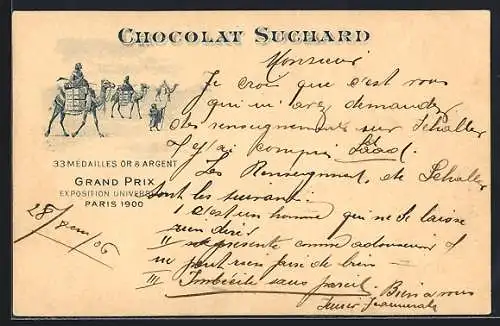 CHOCOLAT SUCHARD
Monsieur
Je crois que c'est vous
qui m'avez demandez
des renseignements sur Schaller
33 MÉDAILLES OR & ARGENT
GRAND PRIX
EXPOSITION UNIVERSELLE
PARIS 1900
28/ 06
et j'ai compris
Les Renseignmt. de Schaller
sont les suivants:
1 c'est un homme qui ne se laisse
rien dire
II se représente comme
ne peut rien faire de bien —
III Imbécile sans pareil.
Bien à vous